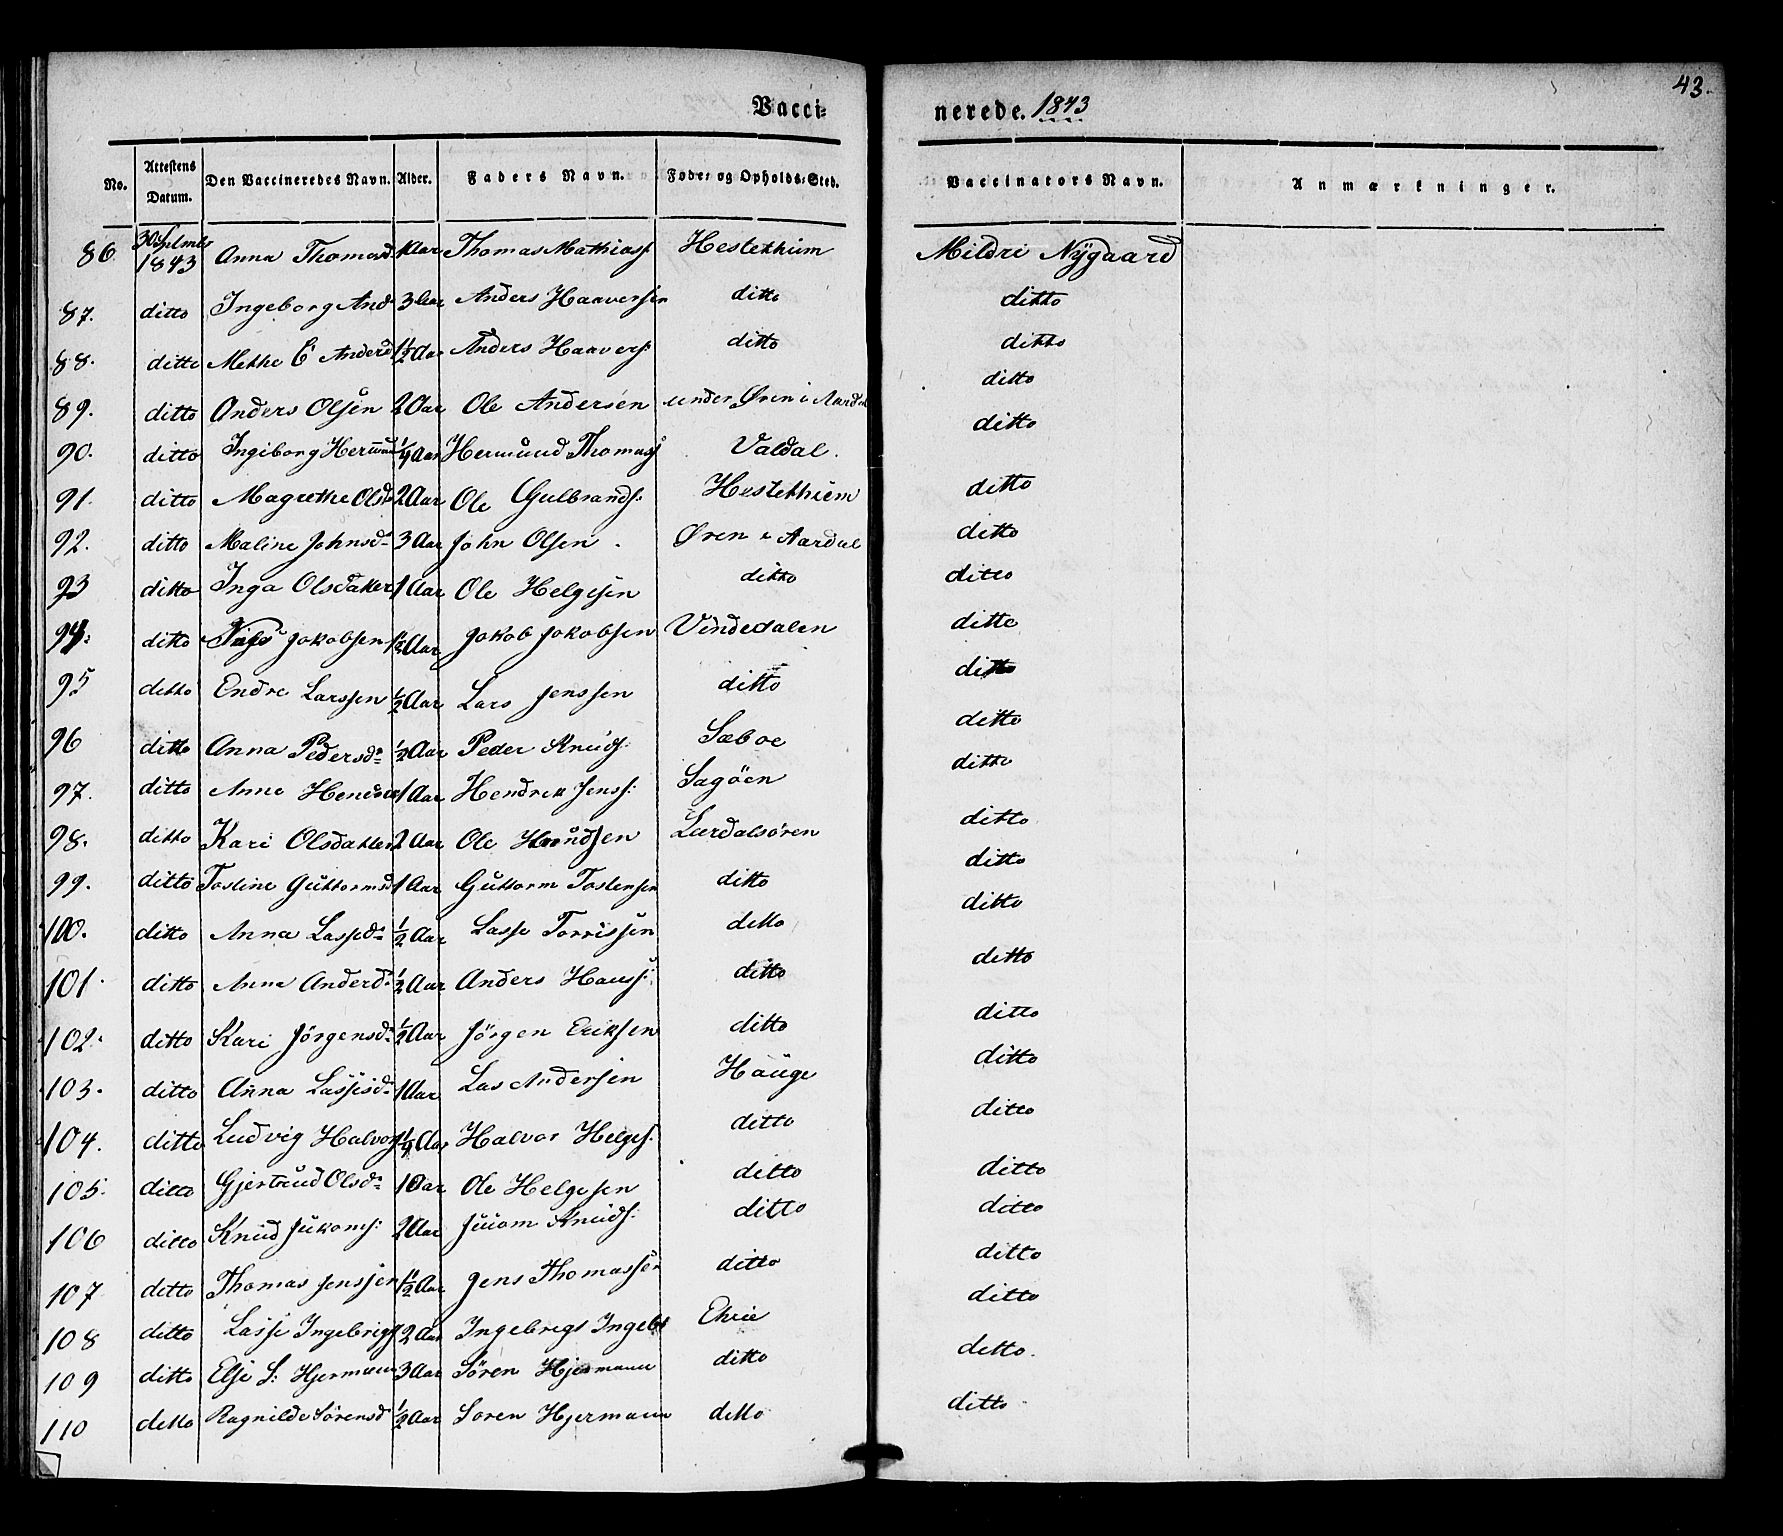 43.
Vacci=
nerede. 1843
No. Attestens Datum. Den Vaccineredes Navn. Alder. Faders Navn. Føde- og Opholds-Sted. Vaccinators Navn. Anmærkninger.
86 30 1843 Anna Thomasd 1 Aar Thomas Mathiass: Hestethiem Mildri Nÿgaard
87. ditto Ingeborg And 3 Aar Anders Haaversen ditto ditto
88. ditto Methe E Anderd 1½ Aar Anders Haavers: ditto ditto
89. ditto Anders Olsen 2 Aar Ole Andersen under Øren i Aardal ditto
90. ditto Ingiborg Hermund ¼ Aar Hermund Thomass Valdal. ditto
91. ditto Magrethe Olsd 2 Aar Ole Gulbrands: Hestethiem ditto
92. ditto Maline Johnsd 3 Aar John Olsen. Øren i Aardal ditto
93 ditto Inga Olsdatter 1 Aar Ole Helgesen ditto ditto
94. ditto Jakobsen 1½ Aar Jakob Jakobsen Vindedalen ditto
95 ditto Endre Larssen ½ Aar Lars Jenssen ditto ditto
96 ditto Anna Pedersd ½ Aar Peder Knuds: Sæboe ditto
97. ditto Anne 1 Aar Hendrik Jenss: Sagöen ditto
98. ditto Kari Olsdatter 2 Aar Ole Lærdalsören ditto
99. ditto Tosline Guttormsd 1 Aar Guttorm Tostensen ditto ditto
100. ditto Anna Lassed ½ Aar Lasse Torrissen ditto ditto
101. ditto Anna Anderd ½ Aar Anders Hanss: ditto ditto
102. ditto Kari Jörgensd ½ Aar Jörgen Eriksen ditto ditto
103. ditto Anna Lassisd 1 Aar Las Andersen Hauge ditto
104. ditto Ludvig Halvors ¼ Aar Halvor Helges: ditto ditto
105. ditto Gjertrud Olsd 1 Aar Ole Helgesen ditto ditto
106 ditto Knud 2 Aar Knuds: ditto ditto
107 ditto Thomas Jenssen 1½ Aar Jens Thomassen ditto ditto
108 ditto Lasse Ingebrigts 2 Aar Ingebrigt Ingebr ditto
109 ditto Else S: Hjermann 3 Aar Sören Hjermann ditto ditto.
110 ditto Ragnilde Sörensd ½ Aar Soren Hjermann ditto ditto